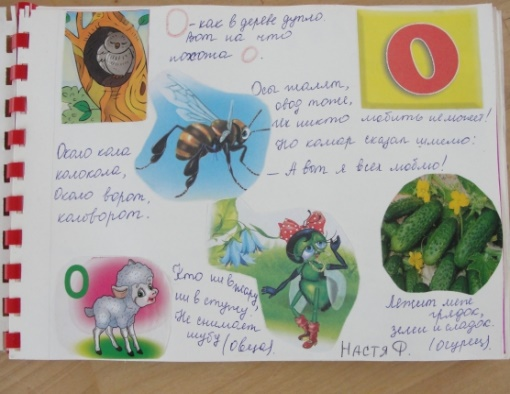 О - как в дереве дупло.
Вот на что
похожа О.
О
Осы жалят,
овод тоже,
Их никто любить не может!
Но комар сказал им:
- А вот я всех люблю!
Около кола
колокола,
Около ворот,
коловорот.
О
Кто ни в жару,
ни в стужу,
Не снимает
шубу (Овца).
Лежит меж
грядок,
зелен и сладок.
(огурец).
НАСТЯ Ф.